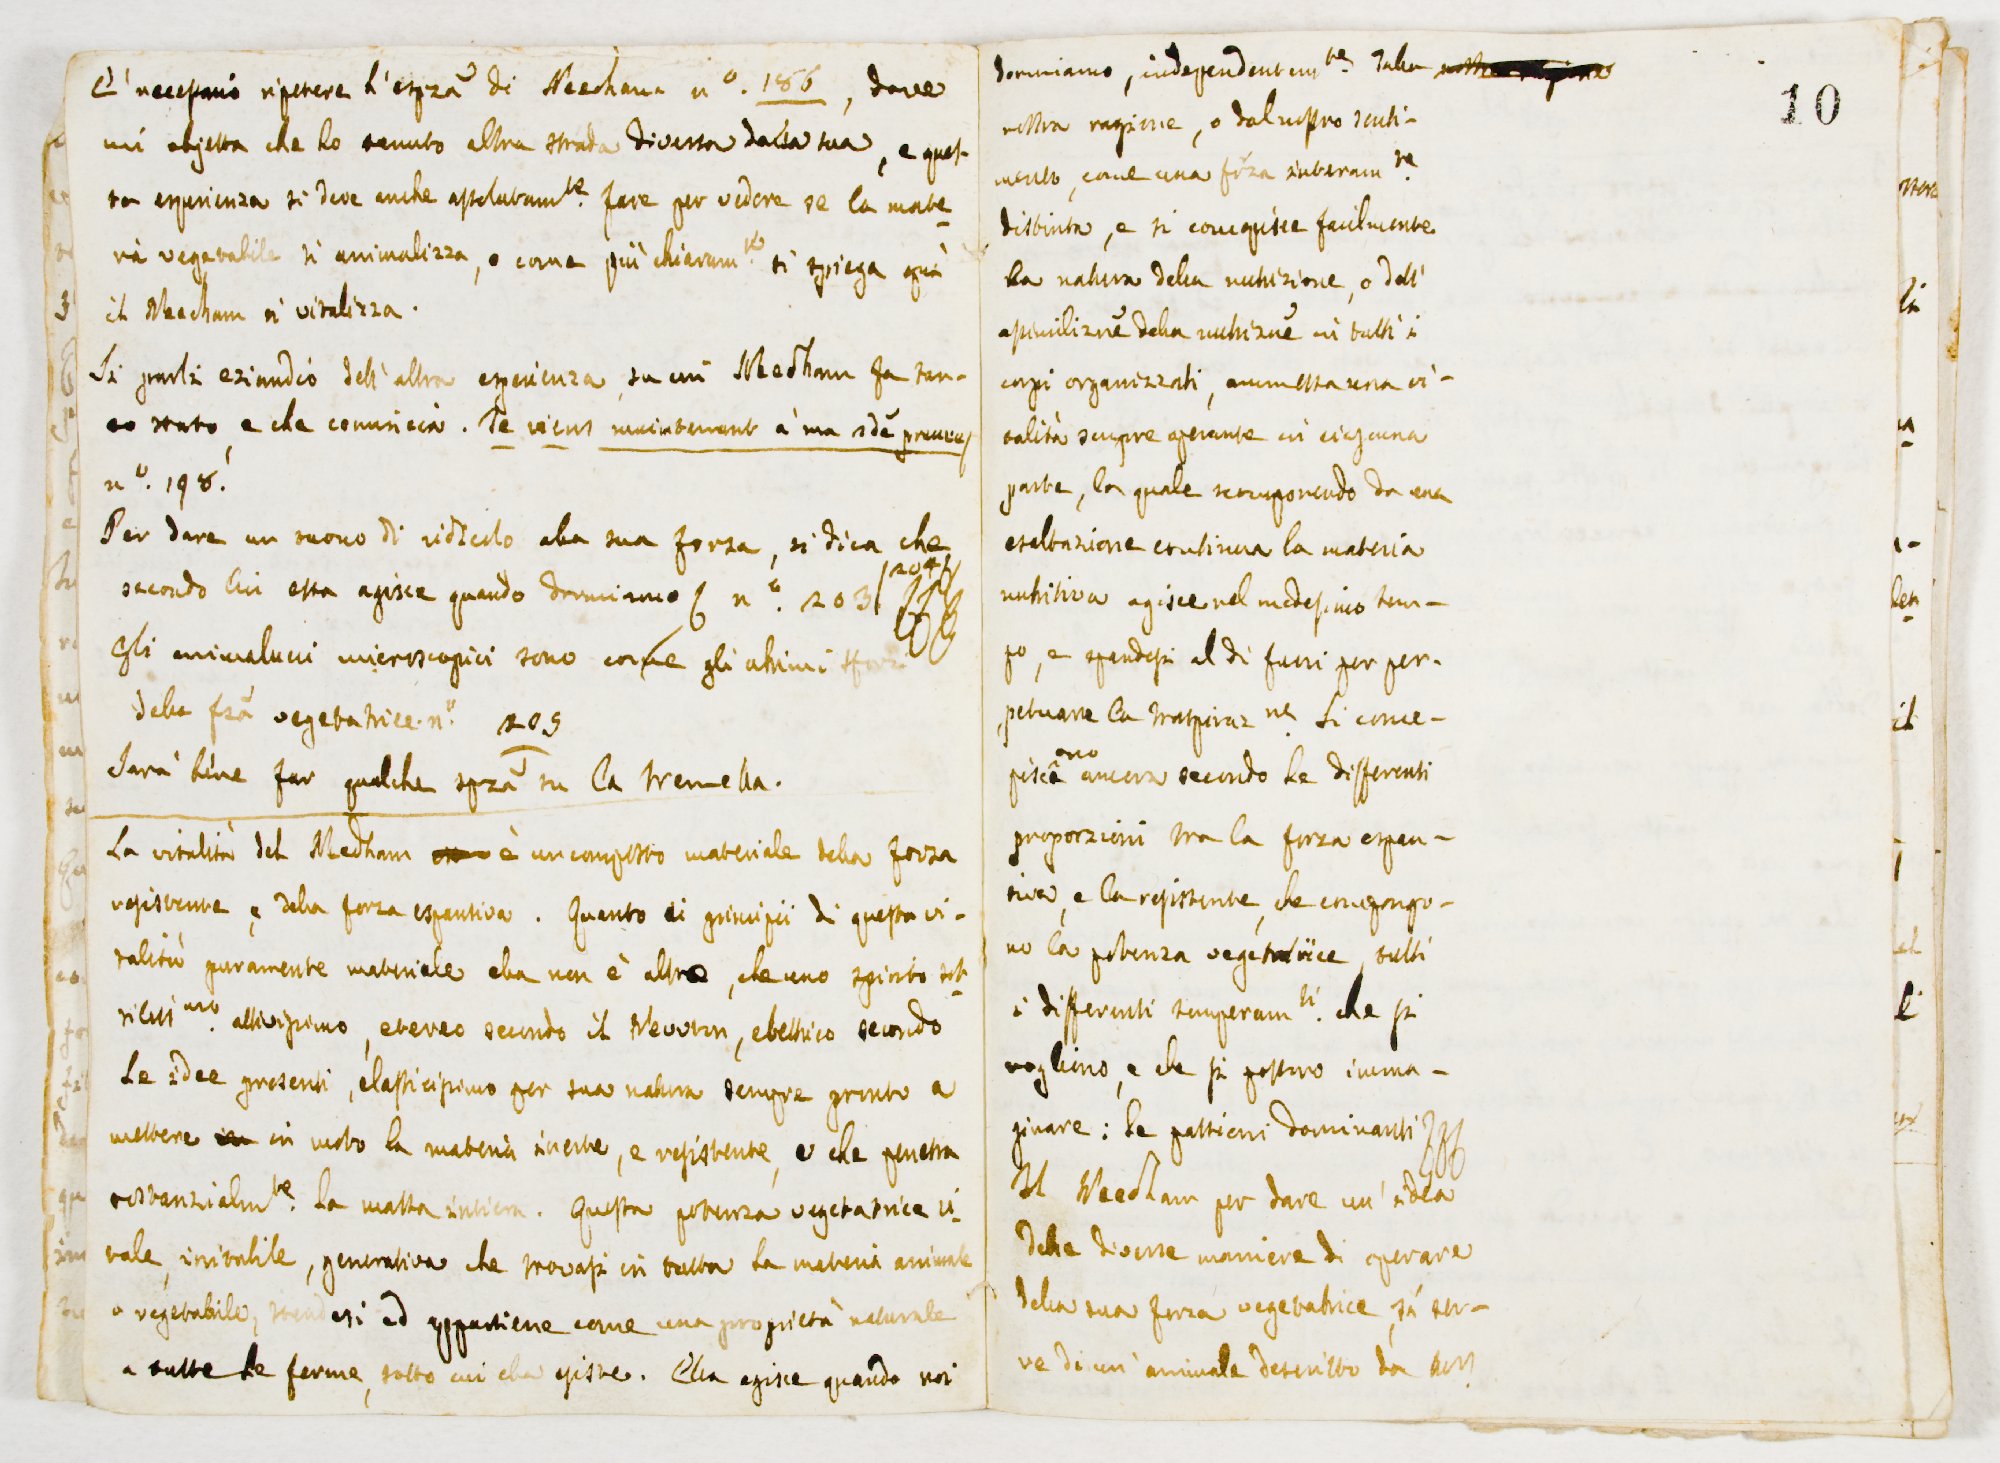 E' necessario ripetere l'espza di Needham n.º 186, dove
mi objetta che ho tenuto altra strada diversa dalla sua, e ques-
ta esperienza si deve anche assolutamte. fare per vedere se la mate-
ria vegetabile si animalizza, o come più chiaramte. si spiega quà
il Needham si vitalizza.
Si parli eziandio dell'altra esperienza su cui Needham fa tan-
to stato, e che comincia. Je viens maintenant à ma 2de preuve
nº. 198.
Per dare un suono di ridicolo alla sua forza, si dica che
secondo lui essa agisce quando dormiamo nº. 203 204
Gli animalucci microscopici sono come gli ultimi sforzi
della fza vegetatrice nº. 205
Sarà bene far qualche spza su la tremella.
La vitalità del Nedham è un composto materiale della forza
resistente, e della forza espansiva. Quanto ai principii di questa vi-
talità puramente materiale ella non è altro, che uno spirito sot-
tilissimo. attivissimo, etereo secondo il Nevvton, elettrico secondo
le idee presenti, elasticissimo per sua natura sempre pronto a
mettere in moto la materia inerte, e resistente, e che penetra
sostanzialmte. la massa intiera. Questa potenza vegetatrice vi-
tale, irritabile, generativa che trovasi in tutta la materia animale
o vegetabile, stendesi ed appartiene come una proprietà naturale
a tutte le forme, sotto cui ella esiste. Ella agisce quando noi
10
dormiamo, independentemte. dalla
nostra ragione, o dal nostro senti-
mento, come una forza interamte.
distinta, e si concepisce facilmente
la natura della nutrizione, o dell'
assimilizne della nutrizne in tutti i
corpi organizzati, ammessa una vi-
talità sempre operante in ciascuna
parte, la quale scomponendo da una
esaltazione continua la materia
nutritiva agisce nel medesimo tem-
po, e spandesi al di fuori per per-
petuare la traspiraz.ne Si conce-
piscono ancora secondo le differenti
proporzioni tra la forza espan-
siva, e la resistente, che compongo-
no la potenza vegetatrice, tutti
i differenti temperamti. che si
vogliono, e che si possono imma-
ginare: le passioni dominanti
Il Needham per dare un'idea
delle diverse maniere di operare
della sua forza vegetatrice, si ser-
ve di un'animale descritto da